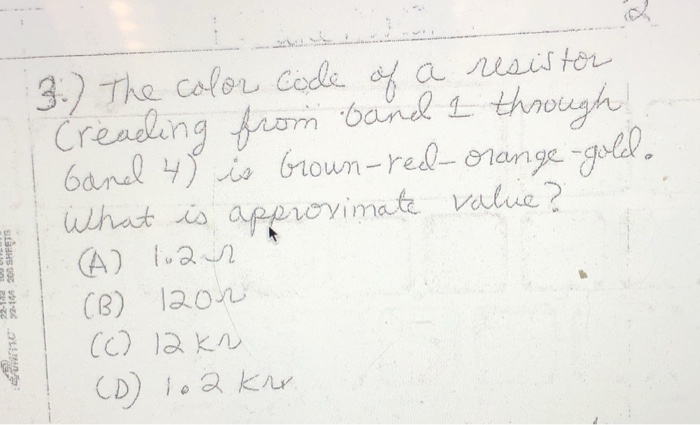 2
3.) The color code of a resistor
(reading from band 1 through
band 4) is brown-red-orange-gold.
What is approximate value?
(A) 1.2 Ω
(B) 120 Ω
(C) 12 KΩ
(D) 1.2 KΩ